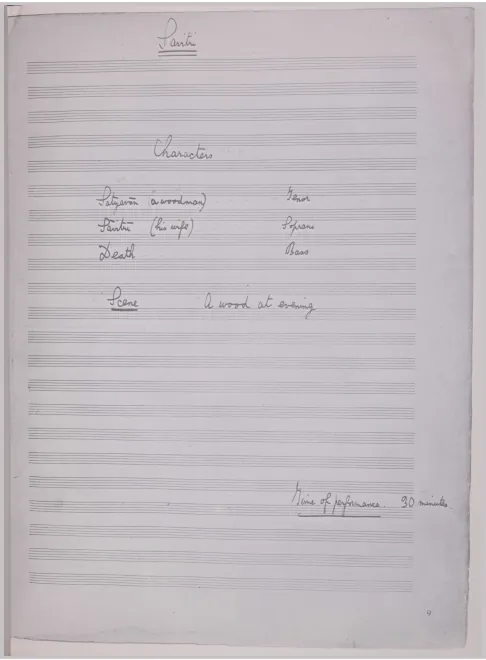 Savitri
Characters
Satyavān (a woodman) Tenor
Sāvitri (his wife) Soprano
Death Bass
Scene A wood at evening
Time of performance. 30 minutes.
4